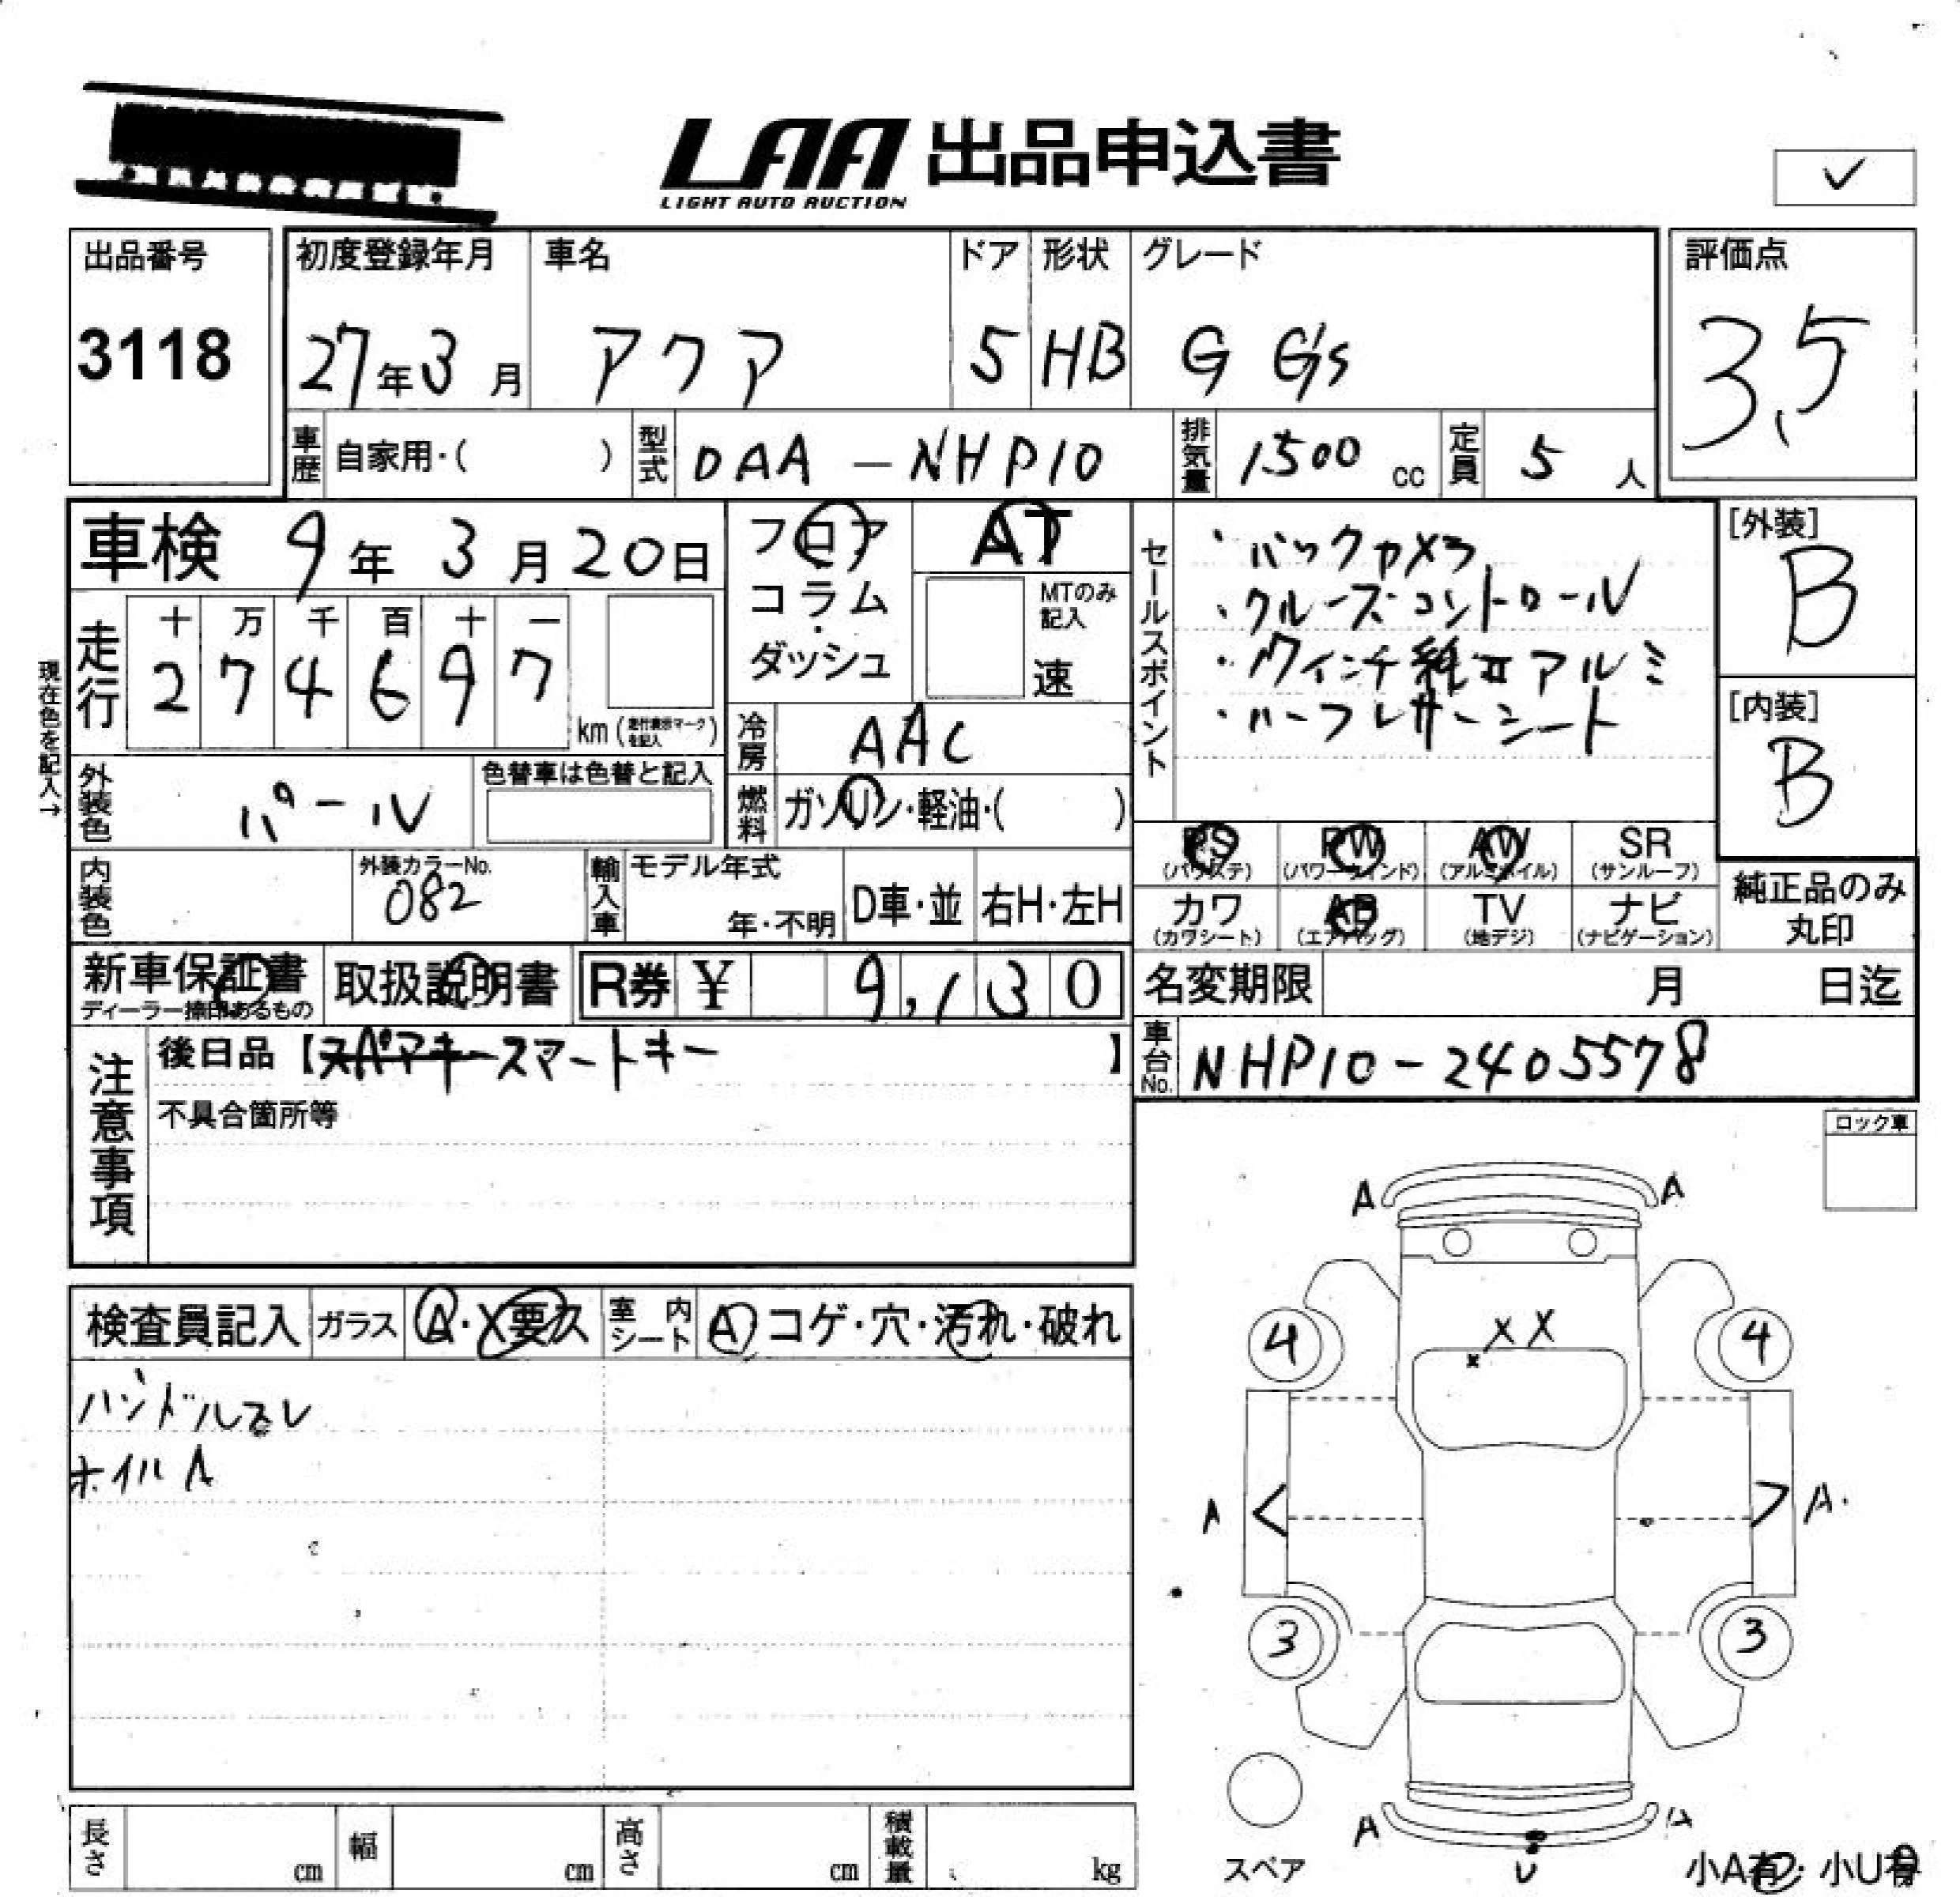 LAA 出品申込書
LIGHT AUTO AUCTION
✓
出品番号
3118
初度登録年月
27年3月
車名
アクア
ドア
5
形状
HB
グレード
G G's
評価点
3.5
車歴 自家用・( )
型式 DAA-NHP10
排気量 1500 cc
定員 5 人
車検 9年3月20日
現在色を記入→
走行
十 万 千 百 十 一
2 7 4 6 9 7
km (走行表示マークを記入)
フロア
コラム
・
ダッシュ
AT
MTのみ記入
速
冷房 AAC
燃料 ガソリン・軽油・( )
セールスポイント
・バックカメラ
・クルーズコントロール
・17インチ純正アルミ
・ハーフレザーシート
[外装]
B
[内装]
B
外装色 パール
色替車は色替と記入
内装色
外装カラーNo.
082
輸入車
モデル年式
年・不明
D車・並
右H・左H
PS
(パワステ)
PW
(パワーウインド)
AW
(アルミホイル)
SR
(サンルーフ)
カワ
(カワシート)
AB
(エアバッグ)
TV
(地デジ)
ナビ
(ナビゲーション)
純正品のみ
丸印
新車保証書
ディーラー捺印あるもの
取扱説明書
R券 ¥ 9,130
名変期限 月 日迄
注意事項
後日品【スペアキースマートキー】
不具合箇所等
車台No. NHP10-2405578
ロック車
検査員記入
ガラス A・X要ス
室内シート A コゲ・穴・汚れ・破れ
ハンドルスレ
ホイルA
A A
X X
x
4 4
A < > A
3 3
A A
U
スペア
小A有・小U有
長さ cm
幅 cm
高さ cm
積載量 kg